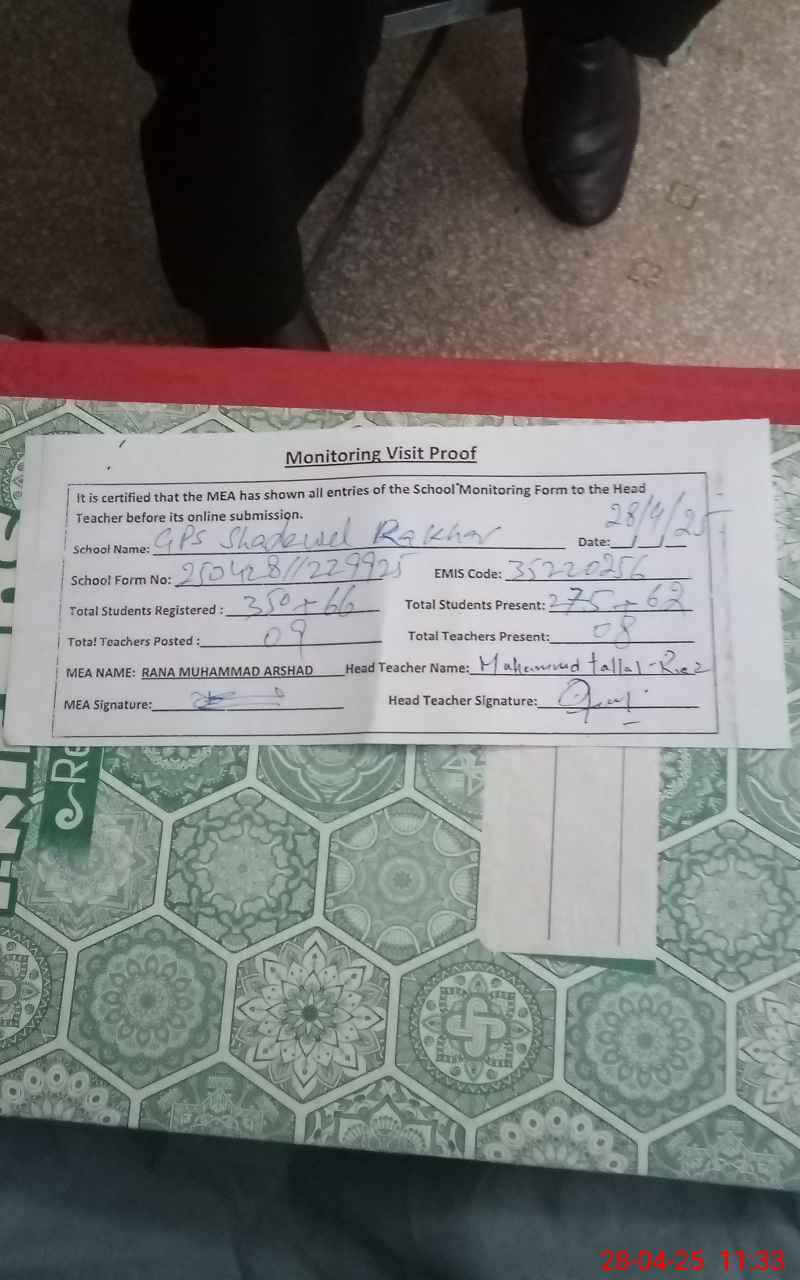 Monitoring Visit Proof
It is certified that the MEA has shown all entries of the School Monitoring Form to the Head
Teacher before its online submission.
School Name: GPS Shadewel Rakhar Date: 28/4/25
School Form No: 25042811229925 EMIS Code: 35220256
Total Students Registered : 350 + 66 Total Students Present: 275 + 62
Total Teachers Posted : 09 Total Teachers Present: 08
MEA NAME: RANA MUHAMMAD ARSHAD Head Teacher Name: Muhammad tallal-Riaz
MEA Signature: Head Teacher Signature:
28-04-25 11:33